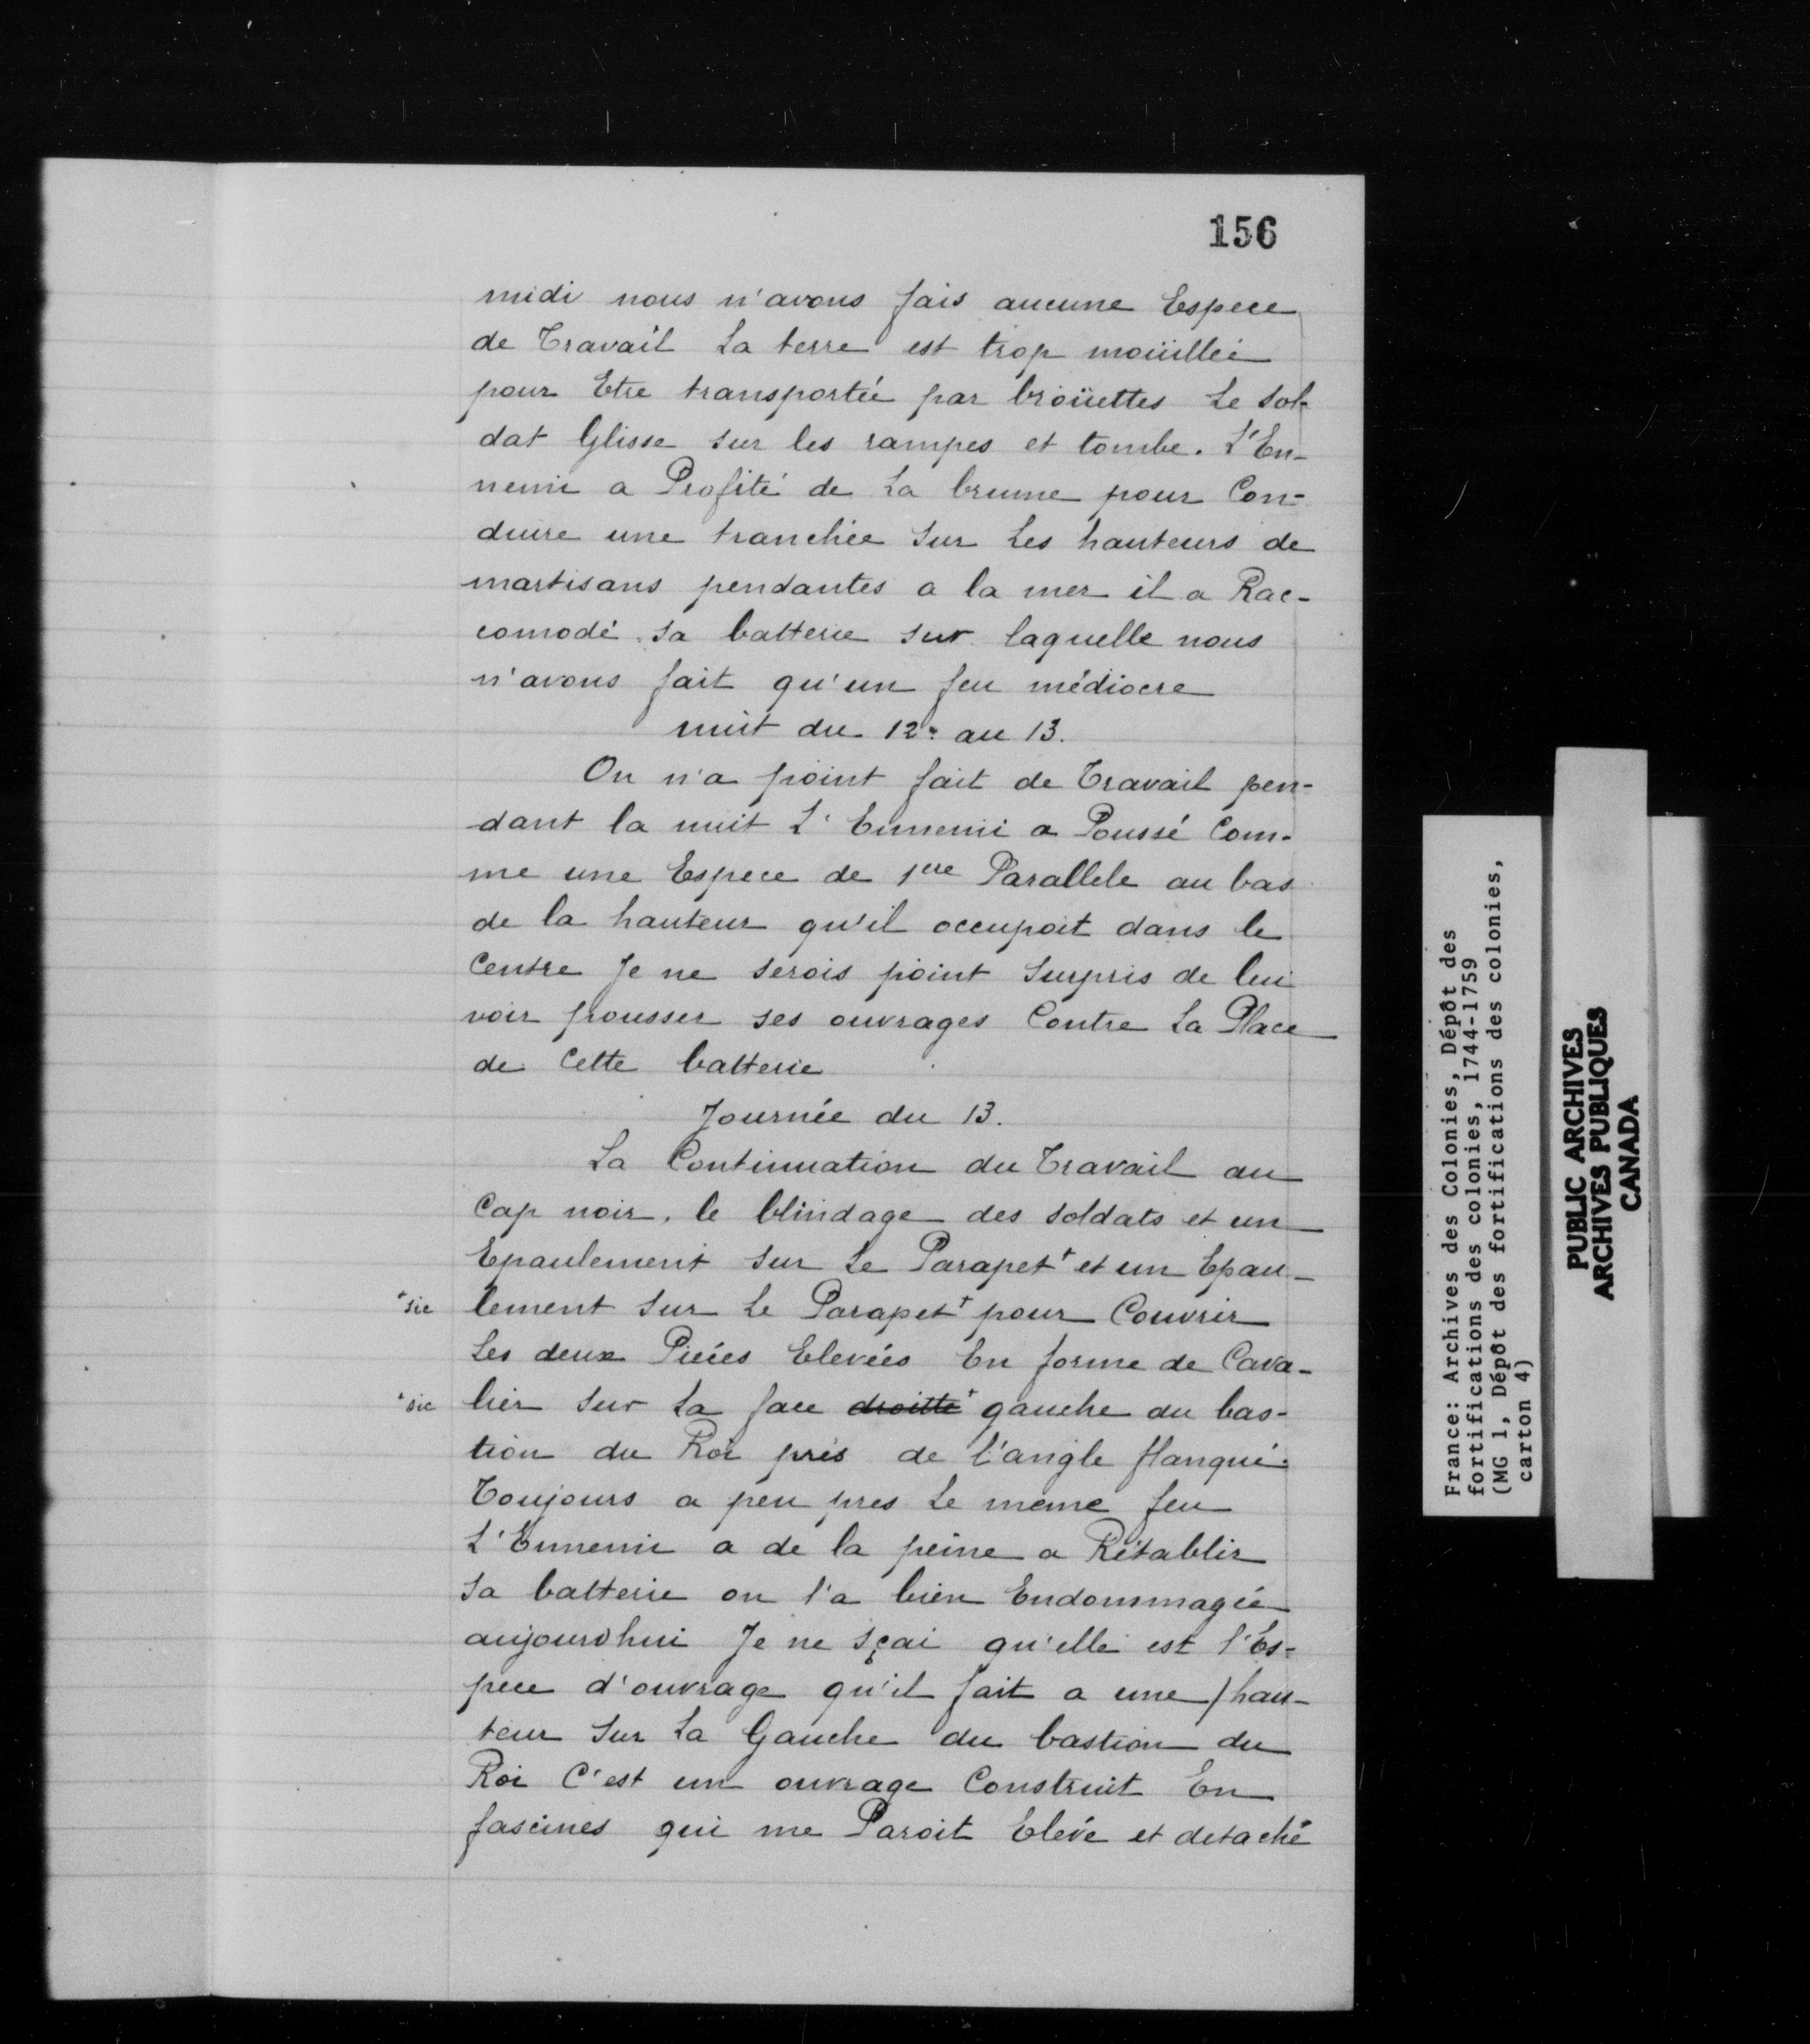 156
midi nous n'avons fais aucune Espece
de Travail La terre est trop moüilleé
pour Etre transporteé par broüettes Le Sol-
dat Glisse sur les rampes et tombe. L'En-
nemi a Profité de La brume pour Con-
duire une tranchée Sur Les hauteurs de
martisans pendantes a la mer il a Rac-
comodé Sa batterie Sur laquelle nous
n'avons fait qu'un feu médiocre
nuit du 12: au 13.
On n'a point fait de Travail pen-
dant la nuit L'Ennemi a Poussé Com-
me une Espece de 1ere Parallele au bas
de la hauteur qu'il occupoit dans le
Centre Je ne serois point Surpris de lui
voir pousser ses ouvrages Contre La Place
de Cette batterie
Journée du 13.
La Continuation du Travail au
Cap noir, le blindage des soldats et un
Epaulement Sur Le Parapet+ et un Epau-
+sic lement Sur Le Parapet+ pour Couvrir
Les deux Pieées Eleveés En forme de Cava-
+sic lier Sur La face droitte+ gauche du bas-
tion du Roi prés de l'angle flanqué.
Toujours a peu pres Le meme feu
L'Ennemi a de la peine a Rétablir
Sa batterie on l'a bien Endommageé
aujourdhui Je ne sçai qu'elle est l'Es-
pece d'ouvrage qu'il fait a une hau-
teur Sur La Gauche du bastion du
Roi C'est un ouvrage Construit En
fascines qui me Paroit Elevé et detaché
France: Archives des Colonies, Dépôt des
fortifications des colonies, 1744-1759
(MG 1, Dépôt des fortifications des colonies,
carton 4)
PUBLIC ARCHIVES
ARCHIVES PUBLIQUES
CANADA